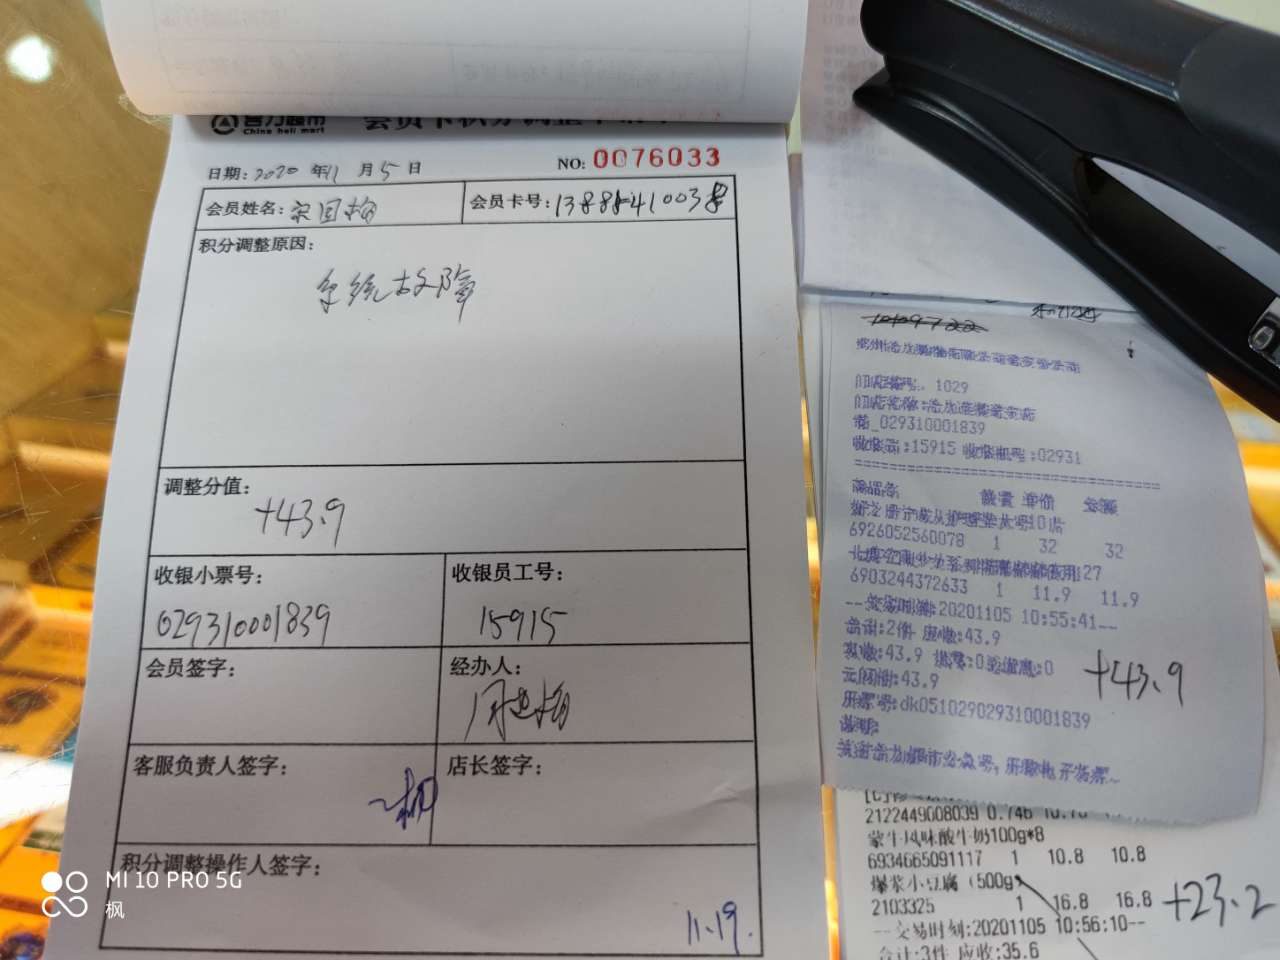 China heli mart
NO: 0076033
日期: 2020 年 11 月 5 日
会员姓名: 宋国梅
会员卡号:
积分调整原因:
系统故障
调整分值:
+43.9
收银小票号:
029310001839
收银员工号:
15915
会员签字:
经办人:
客服负责人签字:
店长签字:
积分调整操作人签字:
11.19.
门店编号: 1029
029310001839
收银员:15915 收银机号:02931
商品名 数量 单价 金额
6926052560078 1 32 32
6903244372633 1 11.9 11.9
--交易时刻:20201105 10:55:41--
合计:2件 应收:43.9
实收:43.9
43.9
+43.9
dk051029029310001839
2122449008039 0.746 10.76
蒙牛风味酸牛奶100g*8
6934665091117 1 10.8 10.8
爆浆小豆腐（500g）
2103325 1 16.8 16.8
+23.2
--交易时刻:20201105 10:56:10--
合计:3件 应收:35.6
MI 10 PRO 5G
枫